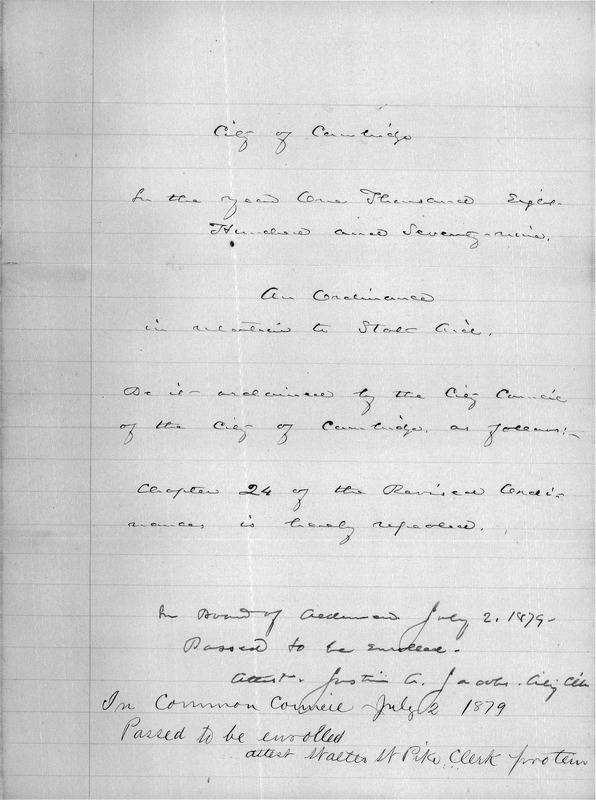 City of Cambridge
In the year One Thousand Eight
Hundred and Seventy-nine.
An Ordinance
in relation to State Aid.
Be it ordained by the City Council
of the City of Cambridge, as follows:-
Chapter 24 of the Revised Ordi-
nances is hereby repealed.
In Board of Aldermen July 2. 1879-
Passed to be enrolled-
Attest. Justin A. Jacobs. City Clk
In Common Council July 2 1879
Passed to be enrolled
attest Walter W Pike, Clerk protem